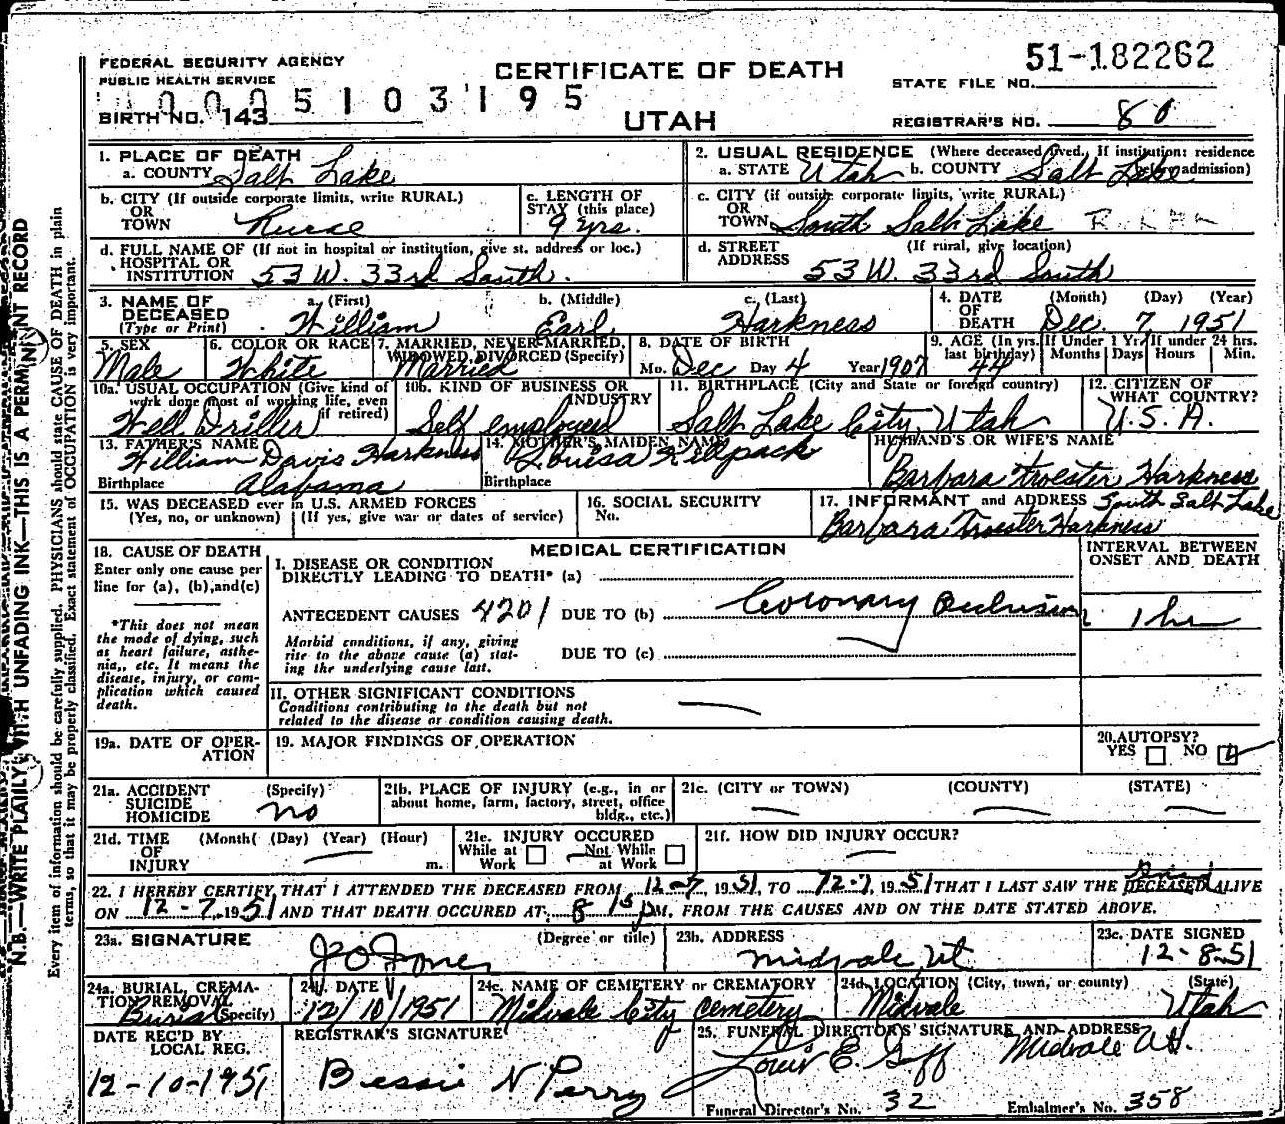 51-182262
FEDERAL SECURITY AGENCY
PUBLIC HEALTH SERVICE
CERTIFICATE OF DEATH
STATE FILE NO.
0005103195
BIRTH NO. 143
UTAH
REGISTRAR'S NO. 80
1. PLACE OF DEATH
a. COUNTY Salt Lake
2. USUAL RESIDENCE (Where deceased lived. If institution: residence
a. STATE Utah b. COUNTY Salt Lake admission)
b. CITY (If outside corporate limits, write RURAL)
OR
TOWN
c. LENGTH OF
STAY (this place)
9 yrs.
c. CITY (if outside corporate limits, write RURAL)
OR
TOWN South Salt Lake
d. FULL NAME OF (If not in hospital or institution, give st. address or loc.)
HOSPITAL OR
INSTITUTION 53 W. 33rd South.
d. STREET (If rural, give location)
ADDRESS 53 W. 33rd South
3. NAME OF DECEASED
(Type or Print)
a. (First) b. (Middle) c. (Last)
William Earl Harkness
4. DATE OF DEATH (Month) (Day) (Year)
Dec. 7 1951
5. SEX
Male
6. COLOR OR RACE
White
7. MARRIED, NEVER MARRIED,
WIDOWED, DIVORCED (Specify)
Married
8. DATE OF BIRTH
Mo. Dec Day 4 Year 1907
9. AGE (In yrs. last birthday) If Under 1 Yr. If under 24 hrs.
44 Months Days Hours Min.
10a. USUAL OCCUPATION (Give kind of
work done most of working life, even
if retired)
Well Driller
10b. KIND OF BUSINESS OR
INDUSTRY
Self employed
11. BIRTHPLACE (City and State or foreign country)
Salt Lake City, Utah
12. CITIZEN OF
WHAT COUNTRY?
U.S.A.
13. FATHER'S NAME
William Davis Harkness
Birthplace Alabama
14. MOTHER'S MAIDEN NAME
Louisa Killpack
Birthplace
HUSBAND'S OR WIFE'S NAME
Barbara Troester Harkness
15. WAS DECEASED ever in U.S. ARMED FORCES
(Yes, no, or unknown) (If yes, give war or dates of service)
16. SOCIAL SECURITY
No.
17. INFORMANT and ADDRESS South Salt Lake
Barbara Troester Harkness
18. CAUSE OF DEATH
Enter only one cause per
line for (a), (b), and (c)
*This does not mean
the mode of dying, such
as heart failure, asthe-
nia, etc. It means the
disease, injury, or com-
plication which caused
death.
MEDICAL CERTIFICATION
INTERVAL BETWEEN
ONSET AND DEATH
I. DISEASE OR CONDITION
DIRECTLY LEADING TO DEATH* (a)
ANTECEDENT CAUSES 4201 DUE TO (b) Coronary Occlusion 1 hr
Morbid conditions, if any, giving
rise to the above cause (a) stat-
ing the underlying cause last.
DUE TO (c)
II. OTHER SIGNIFICANT CONDITIONS
Conditions contributing to the death but not
related to the disease or condition causing death.
19a. DATE OF OPER-
ATION
19. MAJOR FINDINGS OF OPERATION
20. AUTOPSY?
YES NO
21a. ACCIDENT (Specify)
SUICIDE
HOMICIDE no
21b. PLACE OF INJURY (e.g., in or
about home, farm, factory, street, office
bldg., etc.)
21c. (CITY or TOWN) (COUNTY) (STATE)
21d. TIME (Month) (Day) (Year) (Hour)
OF
INJURY m.
21e. INJURY OCCURED
While at Work Not While at Work
21f. HOW DID INJURY OCCUR?
22. I HEREBY CERTIFY THAT I ATTENDED THE DECEASED FROM 12-7, 1951, TO 12-7, 1951 THAT I LAST SAW THE DECEASED ALIVE
ON 12-7, 1951 AND THAT DEATH OCCURED AT 8 15 PM, FROM THE CAUSES AND ON THE DATE STATED ABOVE.
23a. SIGNATURE (Degree or title)
Jones
23b. ADDRESS
Midvale Ut
23c. DATE SIGNED
12-8-51
24a. BURIAL, CREMA-
TION REMOVAL
(Specify)
Burial
24b. DATE
12/10/1951
24c. NAME OF CEMETERY or CREMATORY
Midvale City Cemetery
24d. LOCATION (City, town, or county) (State)
Midvale Utah
DATE REC'D BY
LOCAL REG.
12-10-1951
REGISTRAR'S SIGNATURE
Bessie N Perry
25. FUNERAL DIRECTOR'S SIGNATURE AND ADDRESS
Louis E. Goff Midvale Ut.
Funeral Director's No. 32 Embalmer's No. 358
N.B.—WRITE PLAINLY WITH UNFADING INK—THIS IS A PERMANENT RECORD
Every item of information should be carefully supplied. PHYSICIANS should state CAUSE OF DEATH in plain
terms, so that it may be properly classified. Exact statement of OCCUPATION is very important.